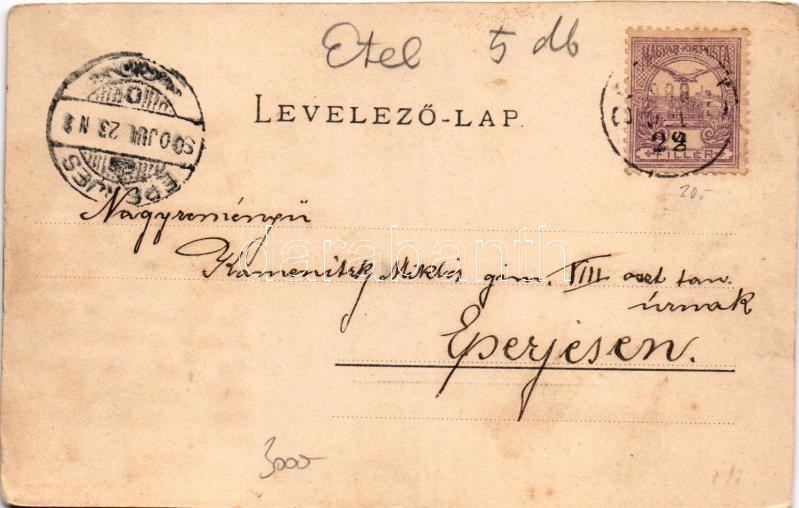 Etel 5 db
MAGYAR KIR. POSTA
FILLÉR
LEVELEZŐ-LAP.
EPERJES
900 JUL. 23. N 8
20.-
Nagyreményü
Kamenitzk Miklós gim. VIII oszt tan.
úrnak
Eperjesen.
3000-
darabanth